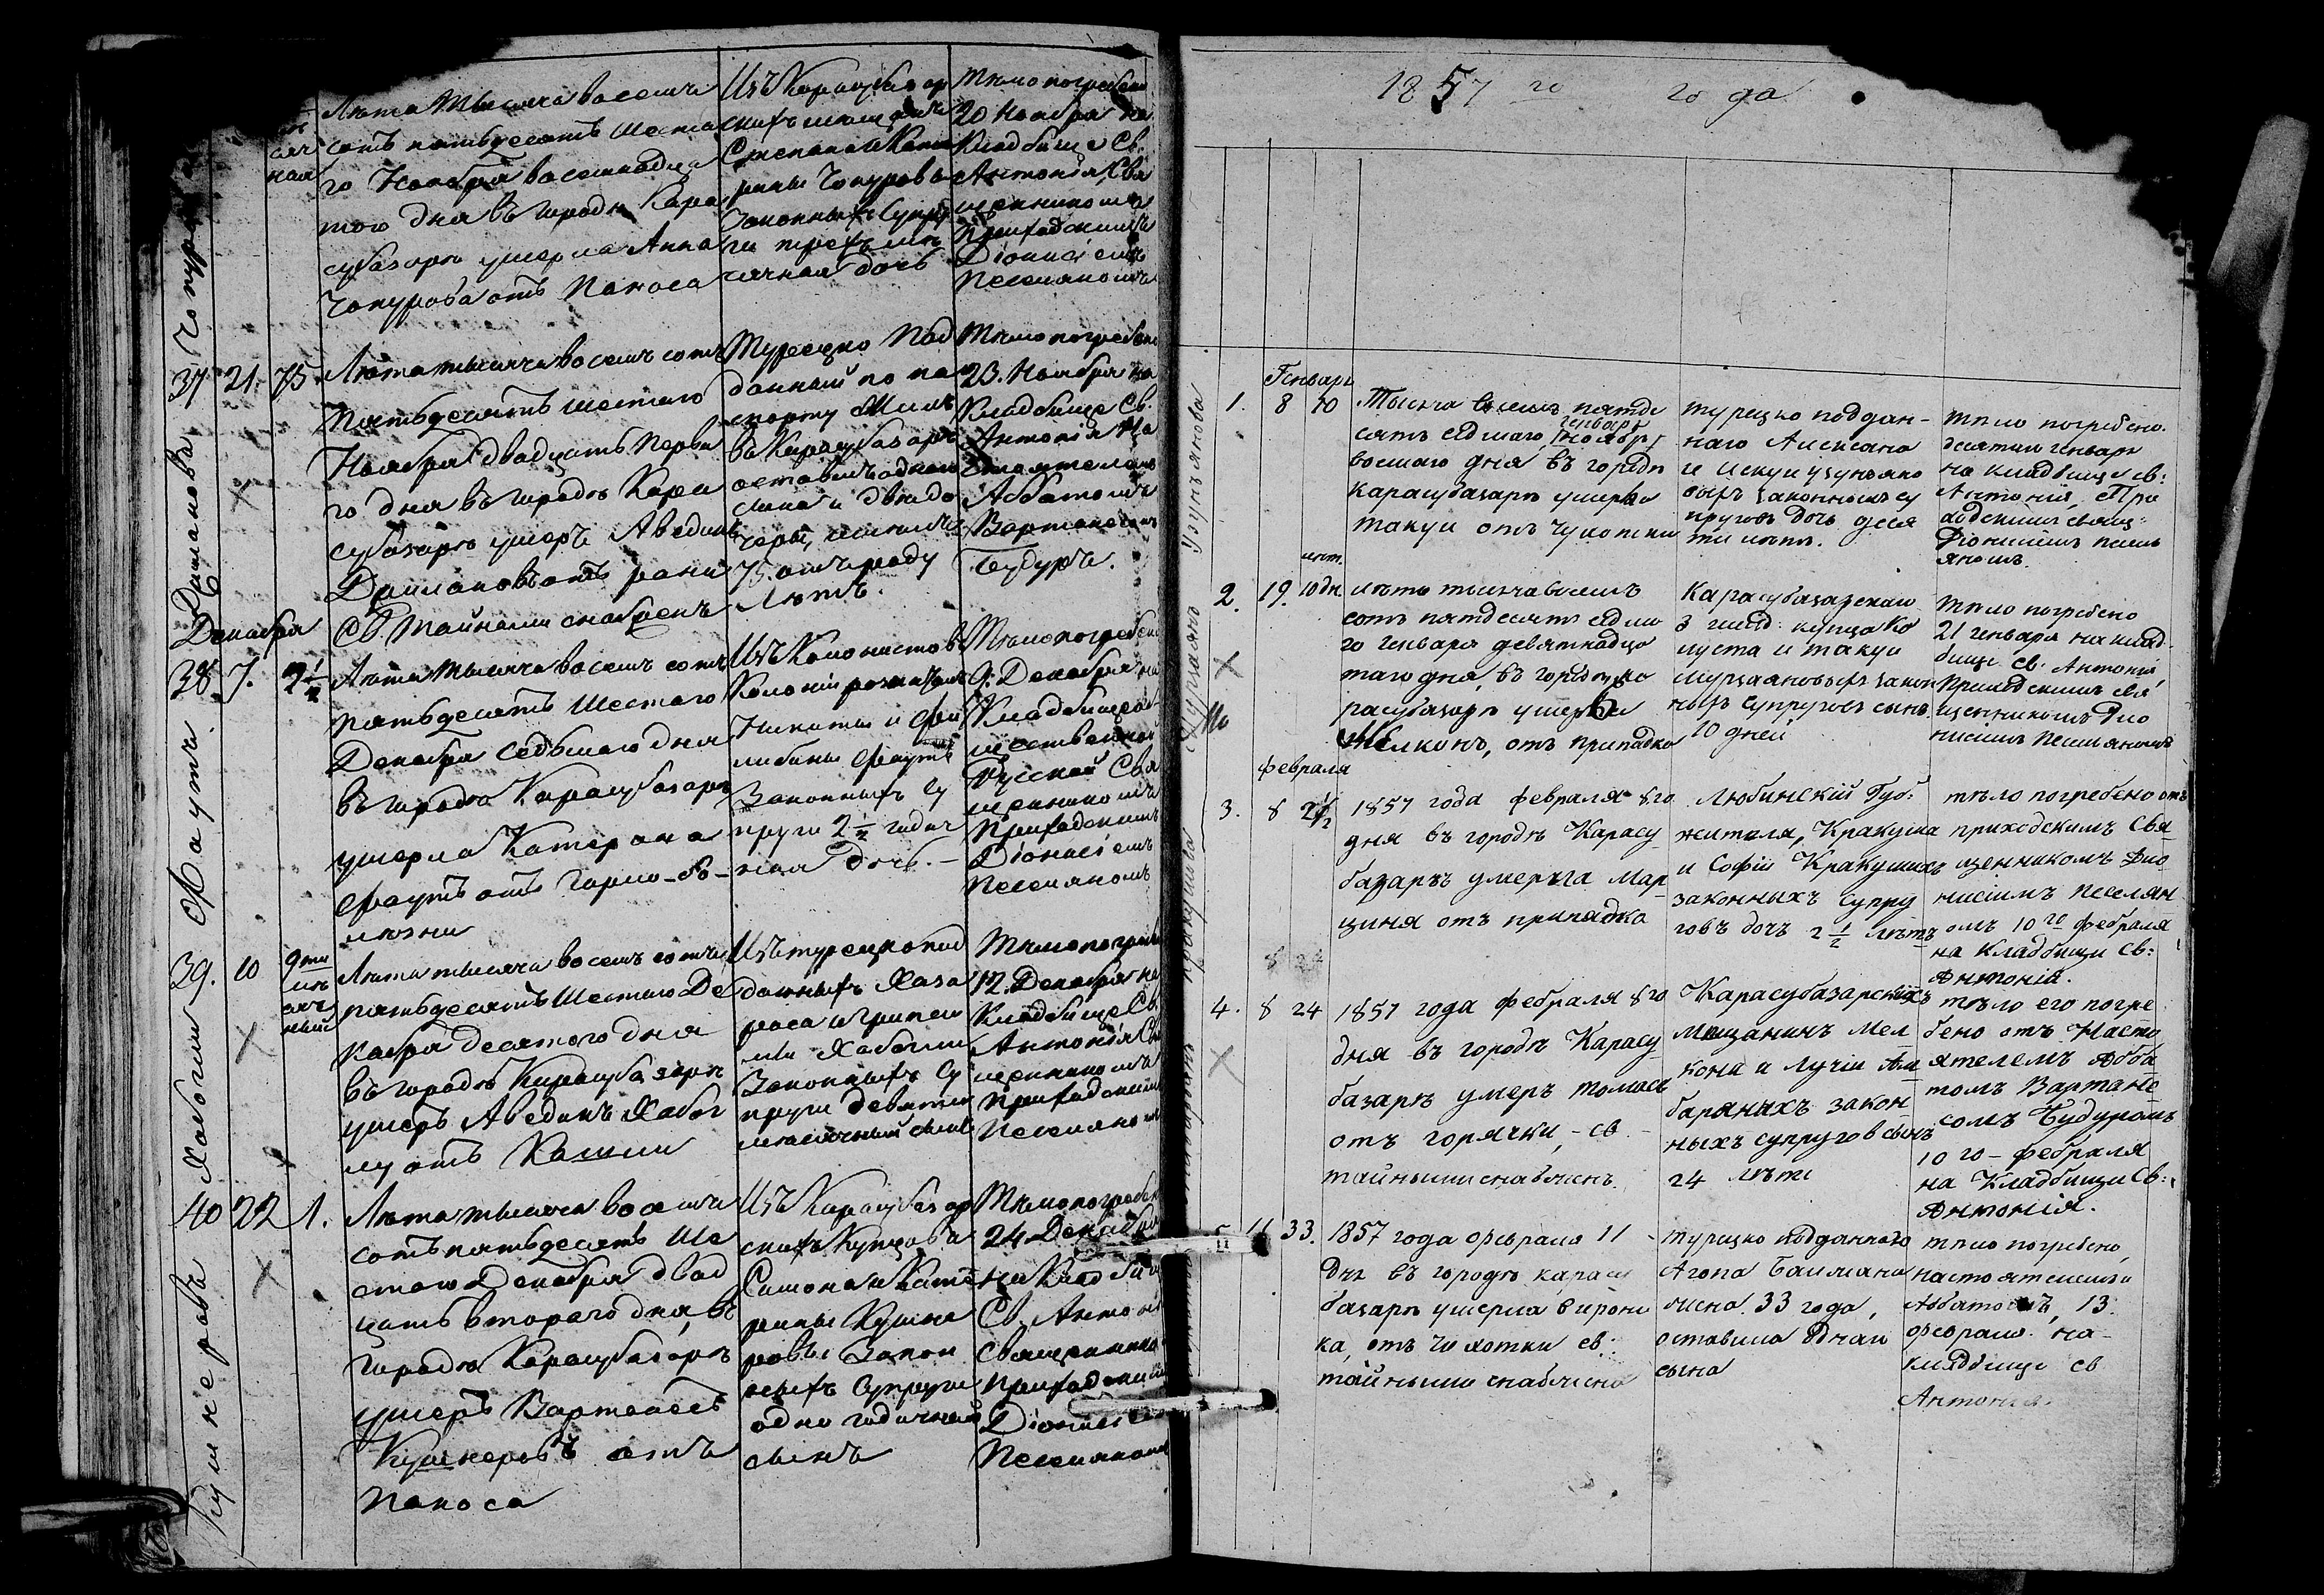 Чопур
ная
Лѣта тысяча восемь
сотъ пятьдесятъ шеста
го Ноября восемнадца
таго дня въ городѣ Кара
субазарѣ умерла Анна
Чопурова отъ поноса
Изъ Карасубазар
скихъ мещанъ
Степана и Кате
рины Чопуровы
законныхъ супру
ги трехъ мѣ
сячная дочь
Тѣло погребено
20 Ноября на
Кладбище Св.
Антонія, Свя
щенникомъ
Приходскимъ
Діонисіемъ
Песеляномъ
Даиланова
37 21. 75
Лѣта тысяча восемь сотъ
пятьдесятъ шестаго
Ноября двадцать перва
го дня въ городѣ Кара
субазарѣ умеръ Аведикъ
Даилановъ отъ раны
Св. Тайнами снабженъ
Турецко под
данный по па
спорту жилъ
въ Карасубазарѣ
оставилъ однаго
сына и двѣ до
чери,
75 отъ роду
лѣтъ.
Тѣло погребено
23. Ноября на
Кладбище Св.
Антонія На
стоятелемъ
Аббатомъ
Вартанесомъ
Будуръ.
Декабря
Фаутъ
38. 7. 2 1/2
Лѣта тысяча восемь сотъ
пятьдесятъ шестаго
Декабря седьмаго дня
въ городѣ Карасубазарѣ
умерла Катерина
Фаутъ отъ горло-бо-
лѣзни
Изъ Колонистовъ
Колоніи розенталь
Никиты и Фи
либины Фаутъ
законныхъ су
пруги 2 1/2 годич
ная дочь. –
Тѣло погребено
9. Декабря на
Кладбище
Русской Свя
щенникомъ
Приходскимъ
Діонисіемъ
Песеляномъ
Хабогли
39. 10 9ти
мѣ
сяч
ный
Лѣта тысяча восемь сотъ
пятьдесятъ шестаго Де
кабря десятаго дня
въ городѣ Карасубазарѣ
умеръ Аведикъ Хабог
лу отъ Кашли
Изъ турецко под
данныхъ Хаза
роса и Трипси
ми Хабогли
законныхъ су
пруги девяти
мѣсячный сынъ
Тѣло погребено
12. Декабря на
Кладбище Св.
Антонія Свя
щенникомъ
Приходскимъ
Песеляномъ
Кушнеровъ
40 22 1.
Лѣта тысяча восемь
сотъ пятьдесятъ ше
стаго Декабря двад
цать втораго дня, въ
городѣ Карасубазарѣ
умеръ Вартанесъ
Кушнеровъ отъ
поноса
Изъ Карасубазар
скихъ Купцовъ
Симона и Кате
рины Кушне
ровы Закон
ныхъ Супруги
одно годичный
сынъ
Тѣло погребено
24 Декабря
на Кладбище
Св. Антонія
Священнико
Приходскимъ
Діонисіемъ
Песеляномъ
1857 го года
Генваря
Узунъянова
1. 8 10
Тысяча восемь пятде
генваря
сятъ седмаго, Ноября
восмаго дня, въ городѣ
Карасубазарѣ умерла
Такуи отъ чихотки
турецко поддан-
наго Алексана
и Искуи узунъяно
выхъ законныхъ су
пруговъ дочь деся
ти лѣтъ.
тѣло погребено.
десятаго генваря
на кладбище св:
Антонія, При
ходскимъ свящ:
Діонисіемъ песель
яномъ.
Мурзаяно
2. 19. 10 дн.
лѣта тысяча восемь
сотъ пятдесятъ седма
го генваря девятнадца
таго дня, въ городѣ Ка
расубазарѣ умеръ
Мелконъ, отъ припадка
Карасубазарскаго
3 гильд: купца Ко
луста и такуи
Мурзаяновыхъ закон
ныхъ супруговъ сынъ
10 дней
тѣло погребено
21 генваря на клад
бище св. Антонія,
Приходскимъ свя
щенникомъ Дио
нисіимъ Песеляномъ
Февраля
3. 8 2 1/2
1857 года Февраля 8го
дня въ городѣ Карасу
базарѣ умерла Мар
циня отъ припадка
Любинскій Губ:
жителя, Кракуша
и Софіи Кракушихъ
законныхъ Супру
говъ дочъ 2 1/2 лѣтъ
тѣло погребено отъ
приходскимъ Свя
щенникомъ Дио
нисіимъ Песелян
омъ 10 го Февраля
на Кладбищи Св:
Антонія.
8 24
4. 8 24
1857 года Февраля 8го
дня въ городѣ Карасу
базарѣ умеръ томаси
отъ горячки, – св –
тайными снабженъ.
Карасубазарскій
Мещанинъ Мел
кона и Лучіи Ам
барянихъ закон
ныхъ супруговъ сынъ
24 лѣти
тѣло его погре
бено отъ Насто
ятелемъ Абба
томъ Вартане
сомъ Будуромъ
10 го – Февраля
на Кладбищи Св:
Антонія.
5 11 33.
1857 года Февраля 11
дня въ городѣ карасу
базарѣ умерла вирони
ка, отъ чихотки св:
тайными снабжена
турецко подданнаго
Агопа Баимана
жена 33 года,
оставила однаи
сына
тѣло погребено,
настоятелемъ
Аббатомъ, 13.
Февраля. на-
кладбище св
Антонія.